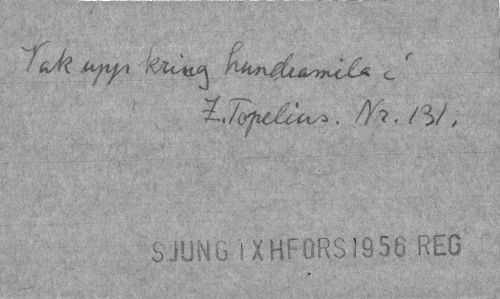 Vak upp, kring hundramila
Z. Topelius. Nr. 131.
SJUNG IX HFORS 1956 REG